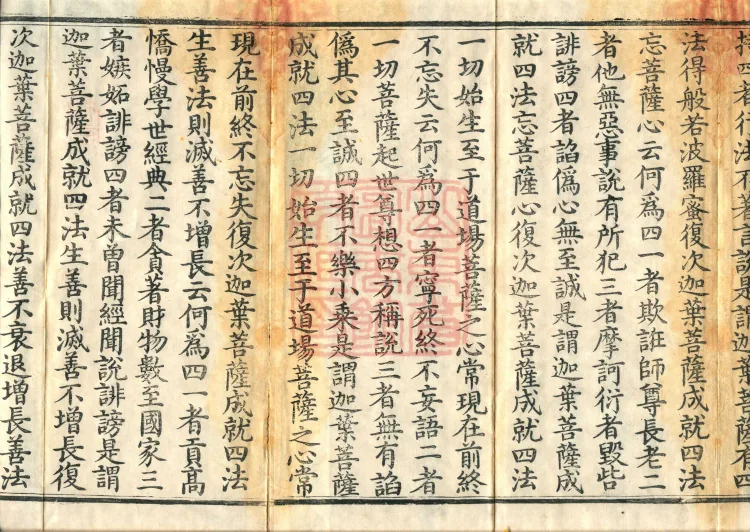 持四者行法不著言說是謂迦葉菩薩有四
法得般若波羅蜜復次迦葉菩薩成就四法
忘菩薩心云何爲四一者欺誑師尊長老二
者他無惡事說有所犯三者摩訶衍者毀呰
誹謗四者諂僞心無至誠是謂迦葉菩薩成
就四法忘菩薩心復次迦葉菩薩成就四法
一切始生至于道場菩薩之心常現在前終
不忘失云何爲四一者寧死終不妄語二者
一切菩薩起世尊想四方稱說三者無有諂
僞其心至誠四者不樂小乗是謂迦葉菩薩
成就四法一切始生至于道場菩薩之心常
現在前終不忘失復次迦葉菩薩成就四法
生善法則滅善不增長云何爲四一者貢髙
憍慢學世經典二者貪著財物數至國家三
者嫉妬誹謗四者未曽聞經聞說誹謗是謂
迦葉菩薩成就四法生善則滅善不增長復
次迦葉菩薩成就四法善不衰退增長善法